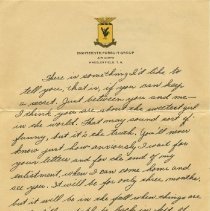 AIR CORPS
WHEELER FIELD, T. H.
There is something I'd like to
tell you, that is, if you can keep
a secret. Just between you and me—
I think you are about the sweetest girl
in the world. That may sound sort of
funny, but it is the truth. You'll never
know just how anxiously I wait for
your letters and for the end of my
enlistment when I can come home and
see you. It will be for only three months,
but it will be in the fall when things are